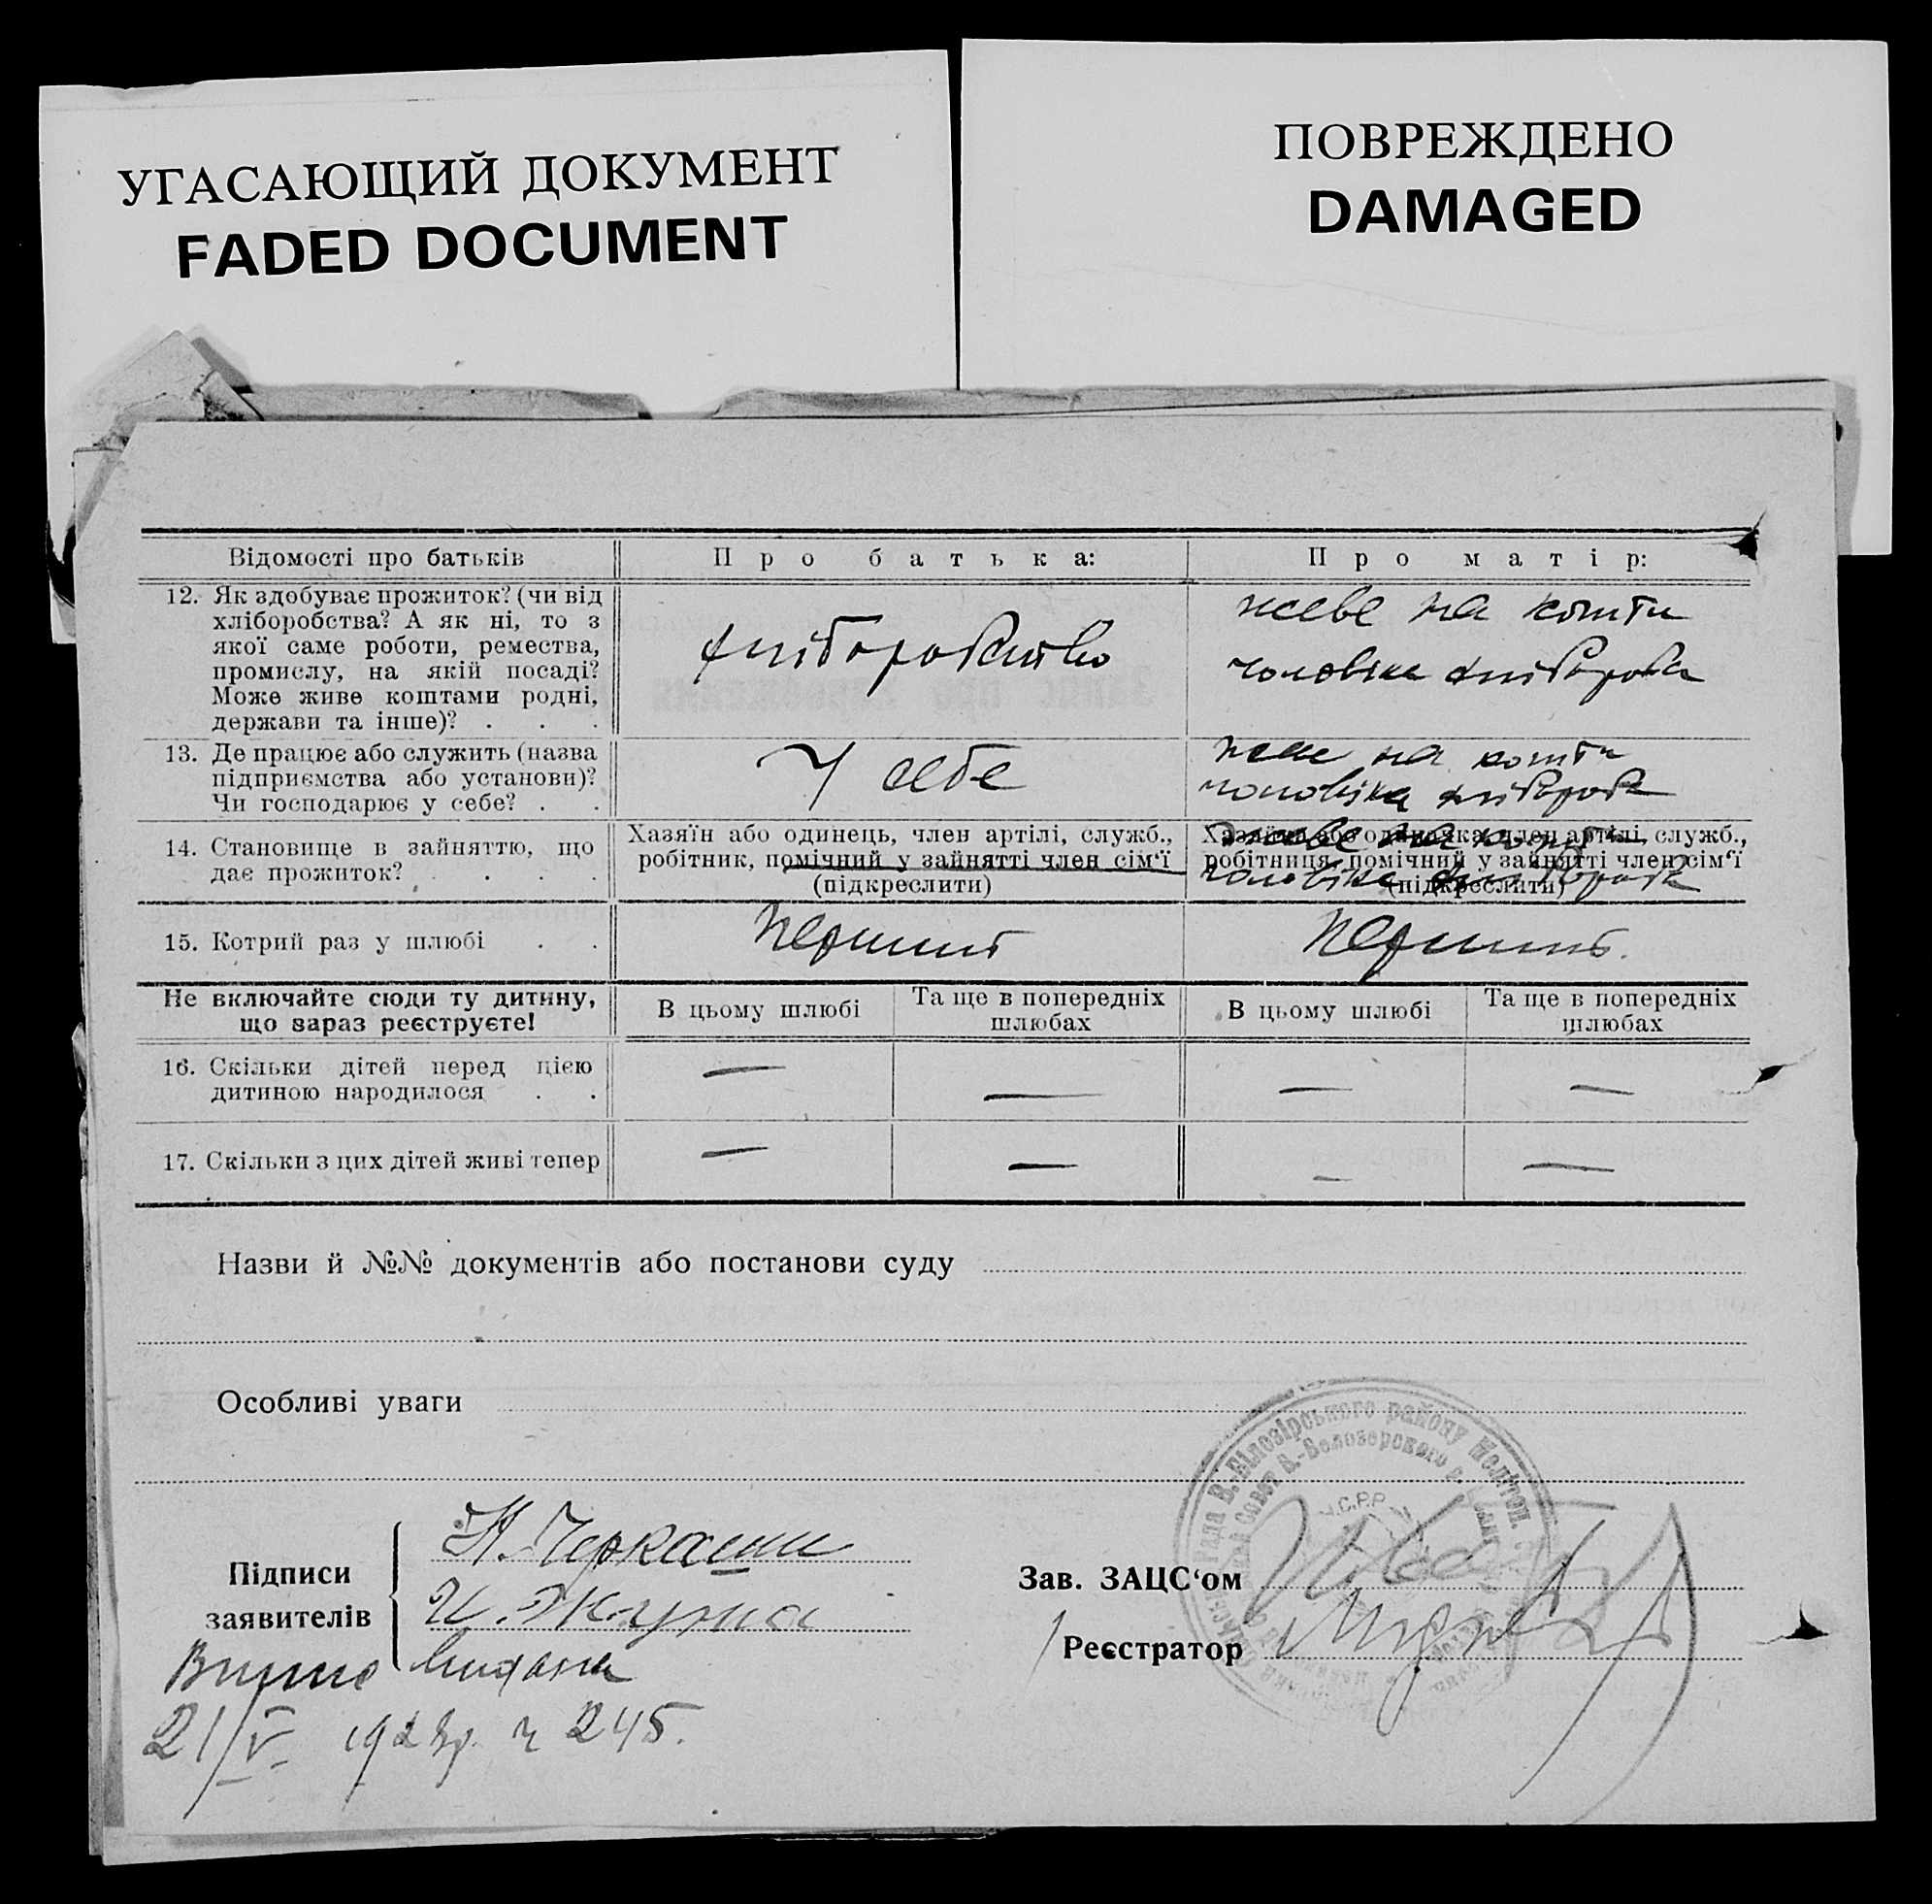 УГАСАЮЩИЙ ДОКУМЕНТ
FADED DOCUMENT
ПОВРЕЖДЕНО
DAMAGED
Відомості про батьків
Про батька:
Про матір:
12. Як здобуває прожиток? (чи від
хліборобства? А як ні, то з
якої саме роботи, ремества,
промислу, на якій посаді?
Може живе коштами родні,
держави та інше)? . . .
хліборобство
живе на кошти
чоловіка хлібороба
13. Де працює або служить (назва
підприємства або установи)?
Чи господарює у себе? . .
У себе
живе на кошти
чоловіка хлібороба
14. Становище в зайняттю, що
дає прожиток? . . . .
Хазяїн або одинець, член артілі, служб.,
робітник, помічний у зайнятті член сім‘ї
(підкреслити)
Хазяїна або одиначка, член артілі, служб.,
робітниця, помічний у зайнятті член сім‘ї
(підкреслити)
живе на кошти
чоловіка хлібороба
15. Котрий раз у шлюбі . .
перший
перший
Не включайте сюди ту дитину,
що зараз реєструєте!
В цьому шлюбі
Та ще в попередніх
шлюбах
В цьому шлюбі
Та ще в попередніх
шлюбах
16. Скільки дітей перед цією
дитиною народилося . .
—
—
—
—
17. Скільки з цих дітей живі тепер
—
—
—
—
Назви й №№ документів або постанови суду
Особливі уваги
Рада В.-Білозірського району Мелітоп.
Совет В.-Белозерского р.
У.С.Р.Р.
Підписи
заявителів
Н. Черкашин
Зав. ЗАЦС‘ом
Реєстратор
видана
21/V 192 р. 245.